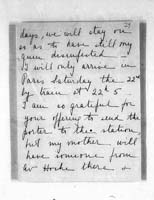 days, we will stay on
so as to have still my
disinfected
I will only arrive in
Paris Saturday the 22nd
by train at 22h 5
I am so grateful for
your offering to send the
porter to the station
but my mother will
have someone from
there &